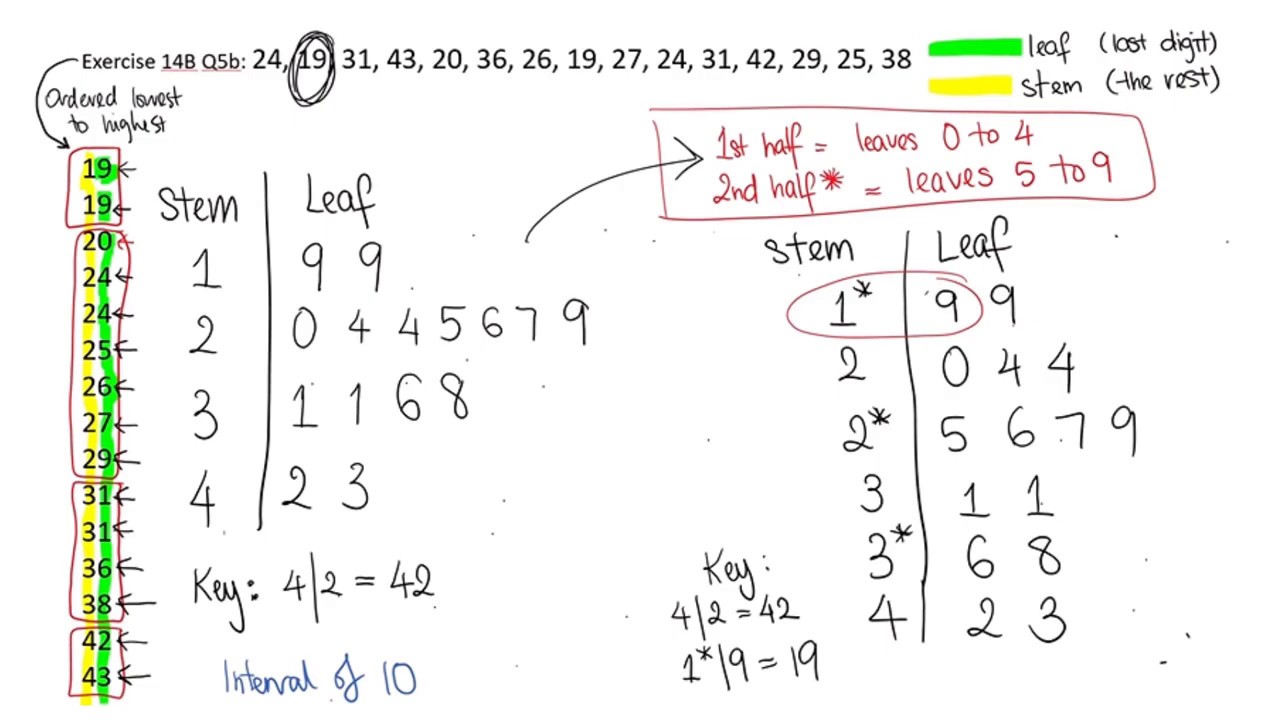 Exercise 14B Q5b: 24, 19, 31, 43, 20, 36, 26, 19, 27, 24, 31, 42, 29, 25, 38
leaf (last digit)
stem (the rest)
Ordered lowest
to highest
19
19
20
24
24
25
26
27
29
31
31
36
38
42
43
Stem | Leaf
1 | 9 9
2 | 0 4 4 5 6 7 9
3 | 1 1 6 8
4 | 2 3
Key: 4|2 = 42
Interval of 10
1st half = leaves 0 to 4
2nd half* = leaves 5 to 9
stem | Leaf
1* | 9 9
2 | 0 4 4
2* | 5 6 7 9
3 | 1 1
3* | 6 8
4 | 2 3
Key:
4|2 = 42
1*|9 = 19